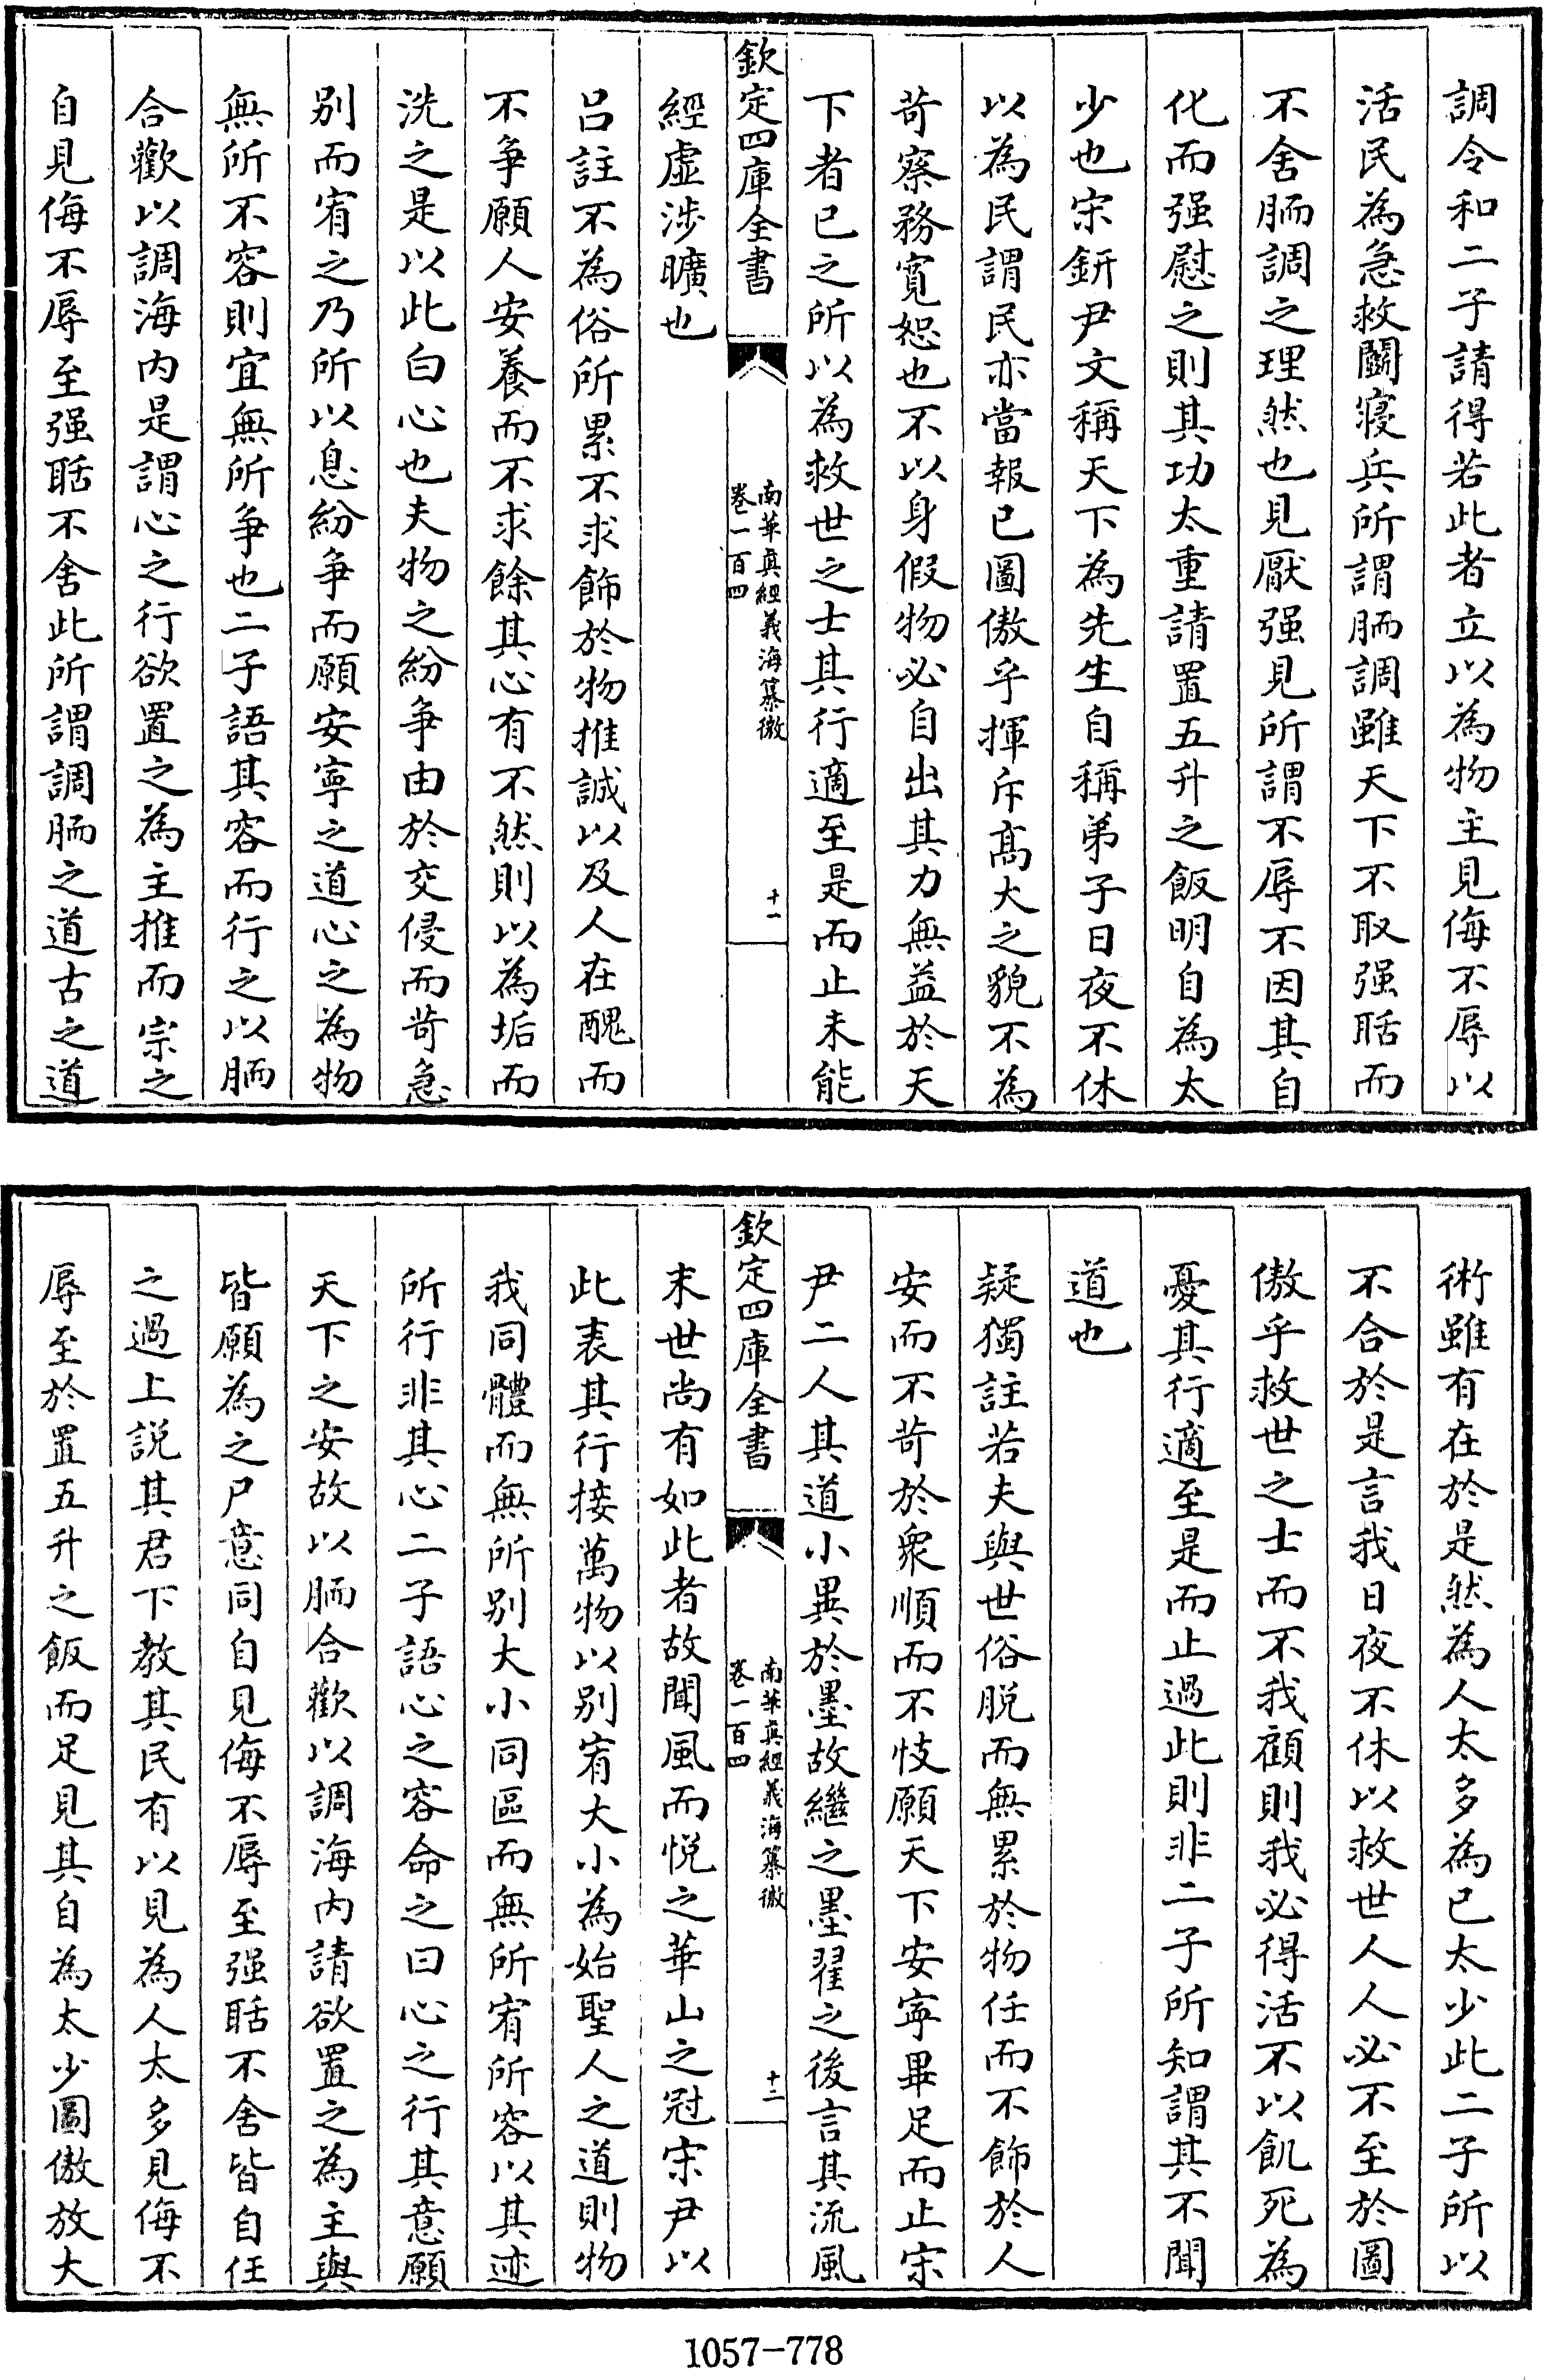 調令和二子請得若此者立以為物主見侮不辱以
活民為急救鬭寢兵所謂胹調雖天下不取强聒而
不舍胹調之理然也見厭强見所謂不辱不因其自
化而强慰之則其功太重請置五升之飯明自為太
少也宋鈃尹文稱天下為先生自稱弟子日夜不休
以為民謂民亦當報已圖傲乎揮斥髙大之貌不為
苛察務寛恕也不以身假物必自出其力無益於天
下者已之所以為救世之士其行適至是而止未能
欽定四庫全書
南華真經義海纂微
卷一百四
十一
經虛涉曠也
吕註不為俗所累不求飾於物推誠以及人在醜而
不争願人安養而不求餘其心有不然則以為垢而
洗之是以此白心也夫物之紛争由於交侵而苛急
别而宥之乃所以息紛争而願安寧之道心之為物
無所不容則宜無所争也二子語其容而行之以胹
合歡以調海内是謂心之行欲置之為主推而宗之
自見侮不辱至强聒不舍此所謂調胹之道古之道
術雖有在於是然為人太多為已太少此二子所以
不合於是言我日夜不休以救世人人必不至於圖
傲乎救世之士而不我顧則我必得活不以飢死為
憂其行適至是而止過此則非二子所知謂其不聞
道也
疑獨註若夫與世俗脱而無累於物任而不飾於人
安而不苛於衆順而不忮願天下安寧畢足而止宋
尹二人其道小異於墨故繼之墨翟之後言其流風
欽定四庫全書
南華真經義海纂微
卷一百四
十二
末世尚有如此者故聞風而悦之華山之冠宋尹以
此表其行接萬物以别宥大小為始聖人之道則物
我同體而無所别大小同區而無所宥所容以其迹
所行非其心二子語心之容命之曰心之行其意願
天下之安故以胹合歡以調海内請欲置之為主與
皆願為之尸意同自見侮不辱至强聒不舍皆自任
之過上説其君下教其民有以見為人太多見侮不
辱至於置五升之飯而足見其自為太少圖傲放大
1057-778